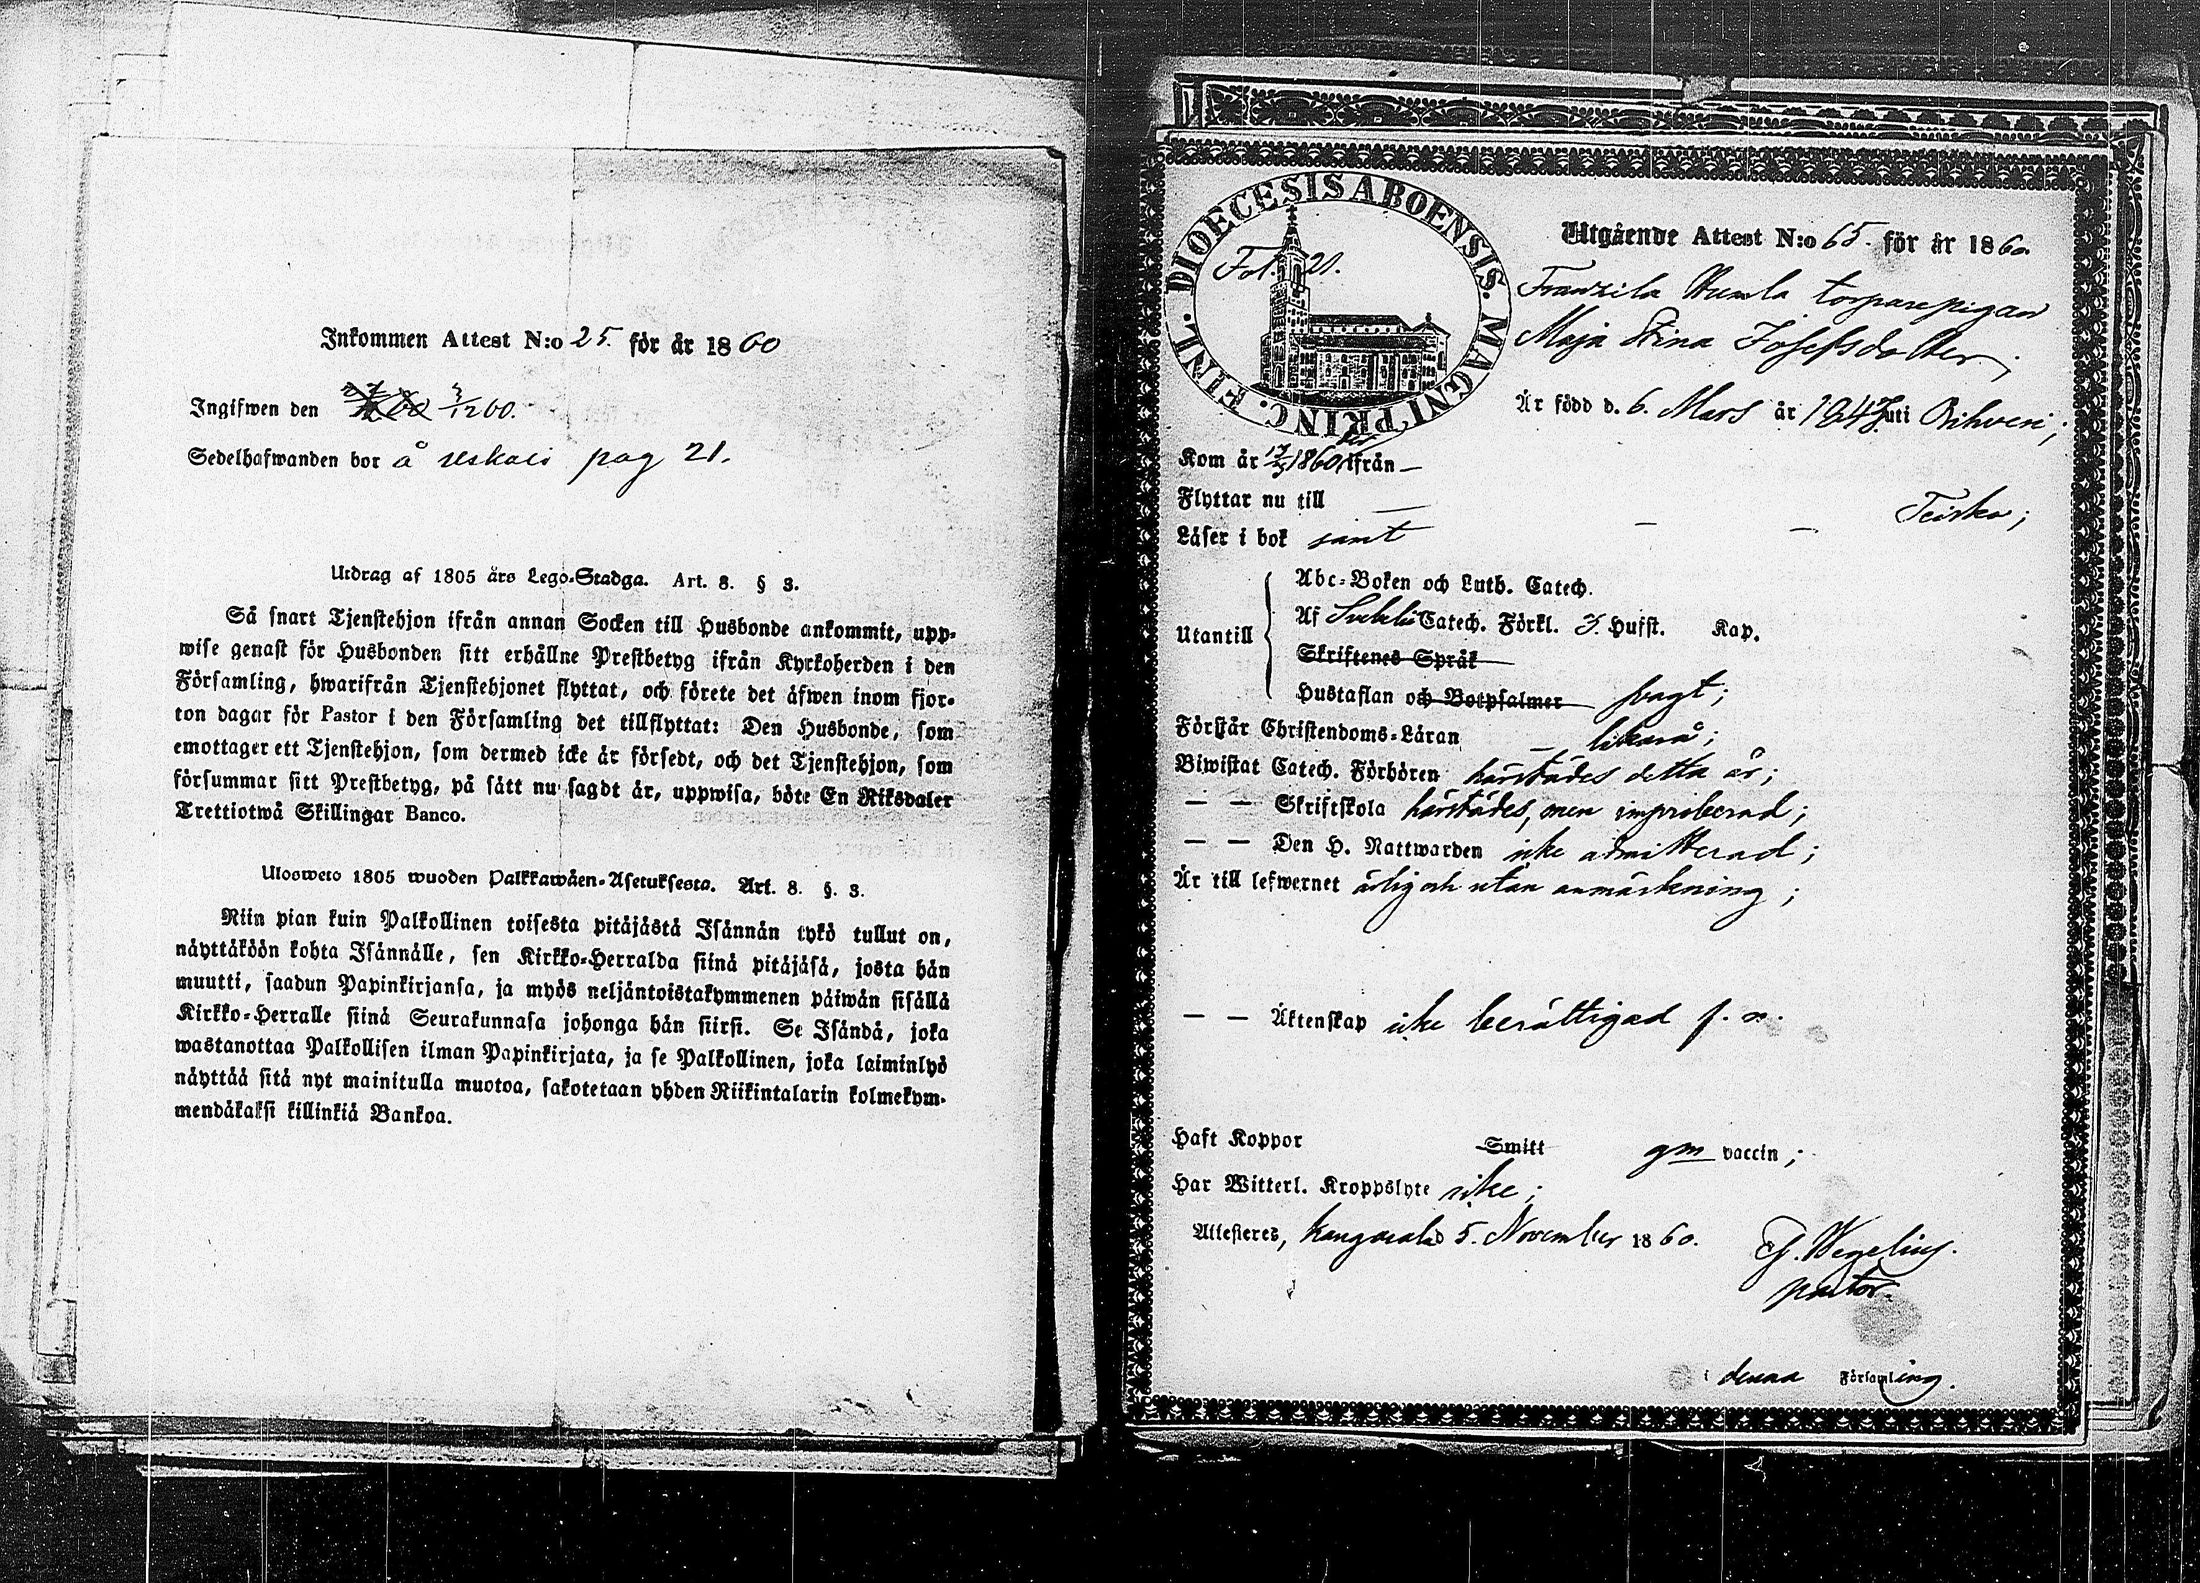 Inkommen Attest N:o 25. för år 1860
Ingifwen den 3/12 60.
Sedelhafwanden bor å Uskali pag 21.
Utdrag af 1805 års Lego-Stadga. Art. 8. § 3.
Så snart Tjenstehjon ifrån annan Socken till Husbonde ankommit, upp-
wise genast för Husbonden sitt erhållne Prestbetyg ifrån Kyrkoherden i den
Församling, hwarifrån Tjenstehjonet flyttat, och förete det äfwen inom fjor-
ton dagar för Pastor i den Församling det tillflyttat: Den Husbonde, som
emottager ett Tjenstehjon, som dermed icke är försedt, och det Tjenstehjon, som
försummar sitt Prestbetyg, på sätt nu sagdt är, uppwisa, böte En Riksdaler
Trettiotwå Skillingar Banco.
Ulosweto 1805 wuoden Palkkawäen-Asetuksesta. Art. 8. §. 3.
Niin pian kuin Palkollinen toisesta pitäjästä Isännän tykö tullut on,
näyttäköön kohta Isännälle, sen Kirkko-Herralda siinä pitäjäsä, josta hän
muutti, saadun Papinkirjansa, ja myös neljäntoistakymmenen päiwän sisällä
Kirkko-Herralle siinä Seurakunnasa johonga hän siirsi. Se Isändä, joka
wastanottaa Palkollisen ilman Papinkirjata, ja se Palkollinen, joka laiminlyö
näyttää sitä nyt mainitulla muotoa, sakotetaan yhden Riikintalarin kolmekym-
mendäkaksi killinkiä Bankoa.
DIOECESIS ABOENSIS. MAGNI PRINC. FINL.
Fol. 21.
Utgående Attest N:o 65. för år 1860.
Franzila Humla torparepigan
Maja Stina Josefsdotter,
Är född d. 6. Mars år 1843 uti Rihveni;
Kom år 1860 ifrån —
Flyttar nu till — — — Teisko;
Läser i bok samt
Abc-Boken och Luth. Catech.
Utantill Af Svebilii Catech. Förkl. 3. Hufst. Kap.
Skriftenes Språk
Hustaflan och Botpsalmer svagt;
Förstår Christendoms-Läran — likaså;
Biwistat Catech. Förhören härstädes detta år;
— — Skriftskola härstädes, men improberad;
— — Den H. Nattwarden icke admitterad;
Är till lefwernet ärlig och utan anmärkning;
— — Äktenskap icke berättigad f. n.
Haft Koppor Smitt gm vaccin;
Har Witterl. Kroppslyte icke;
Attesteres, Kangasala d 5. November 1860. G. Wegelius.
pastor.
i denna Församling.